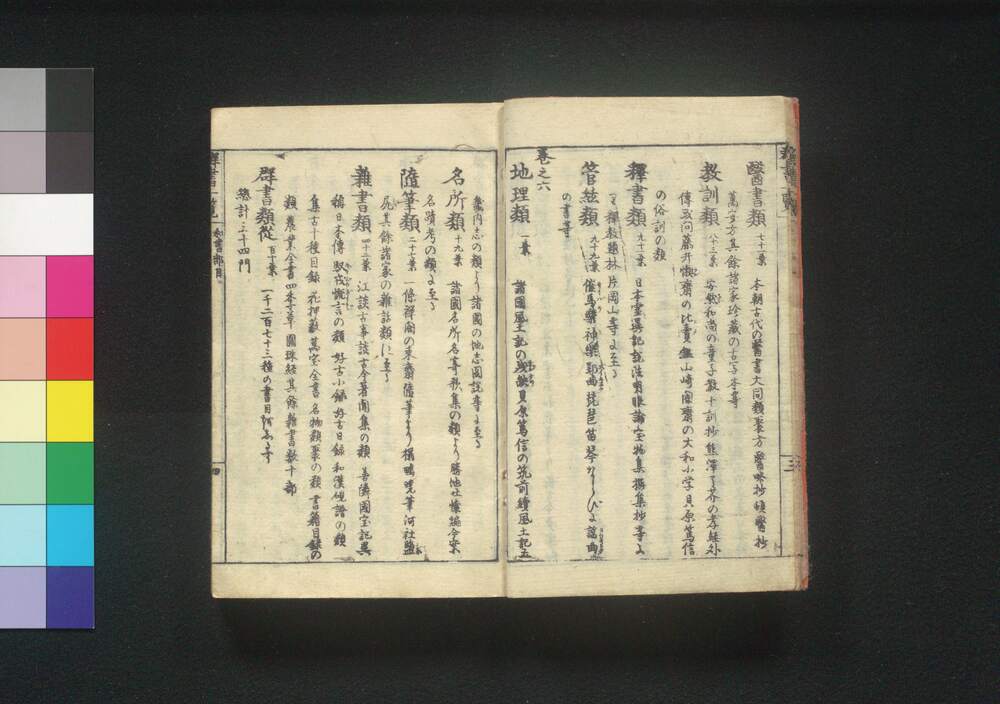 醫書類 七十一葉 本朝古代の醫書大同類聚方醫略抄頓醫抄
萬安方其余諸家珍藏の古写本等
教訓類 八十三葉 安然和尚の童子教十訓抄熊澤了芥の孝経外
傳或問藤井懶齋の比賣鑑山崎闇齋の大和小学貝原篤信
の俗訓の類
釋書類 九十一葉 日本霊異記説法明眼論宝物集撰集抄等よ
り 片岡山等に至る
管絃類 九十九葉 催馬樂神樂郢曲琵琶笛琴ならびに謡曲
の書等
巻之六
地理類 一葉 諸國風土記の残缺貝原篤信の筑前續風土記五
畿内志の類より諸國の地志圖説等に至る
名所類 十九葉 諸國名所名寄歌集の類より勝地吐懐編令案
名蹟考の類に至る
随筆類 二十七葉 一條禅閤の東齋随筆より榻鴫暁筆河社塩
尻其余諸家の雜話類に至る
雜書類 四十二葉 江談古事談古今著聞集の類 善隣國宝記異
稱日本傳馭戎慨言の類 好古小録好古日録和漢硯譜の類
集古十種目録 花押藪萬宝全書名物類聚の類 書籍目録の
類 農業全書四季草圓珠経其余雜書数十部
群書類從 百十葉 一千二百七十三種の書目
總計三十四門
群書一覧
四
三